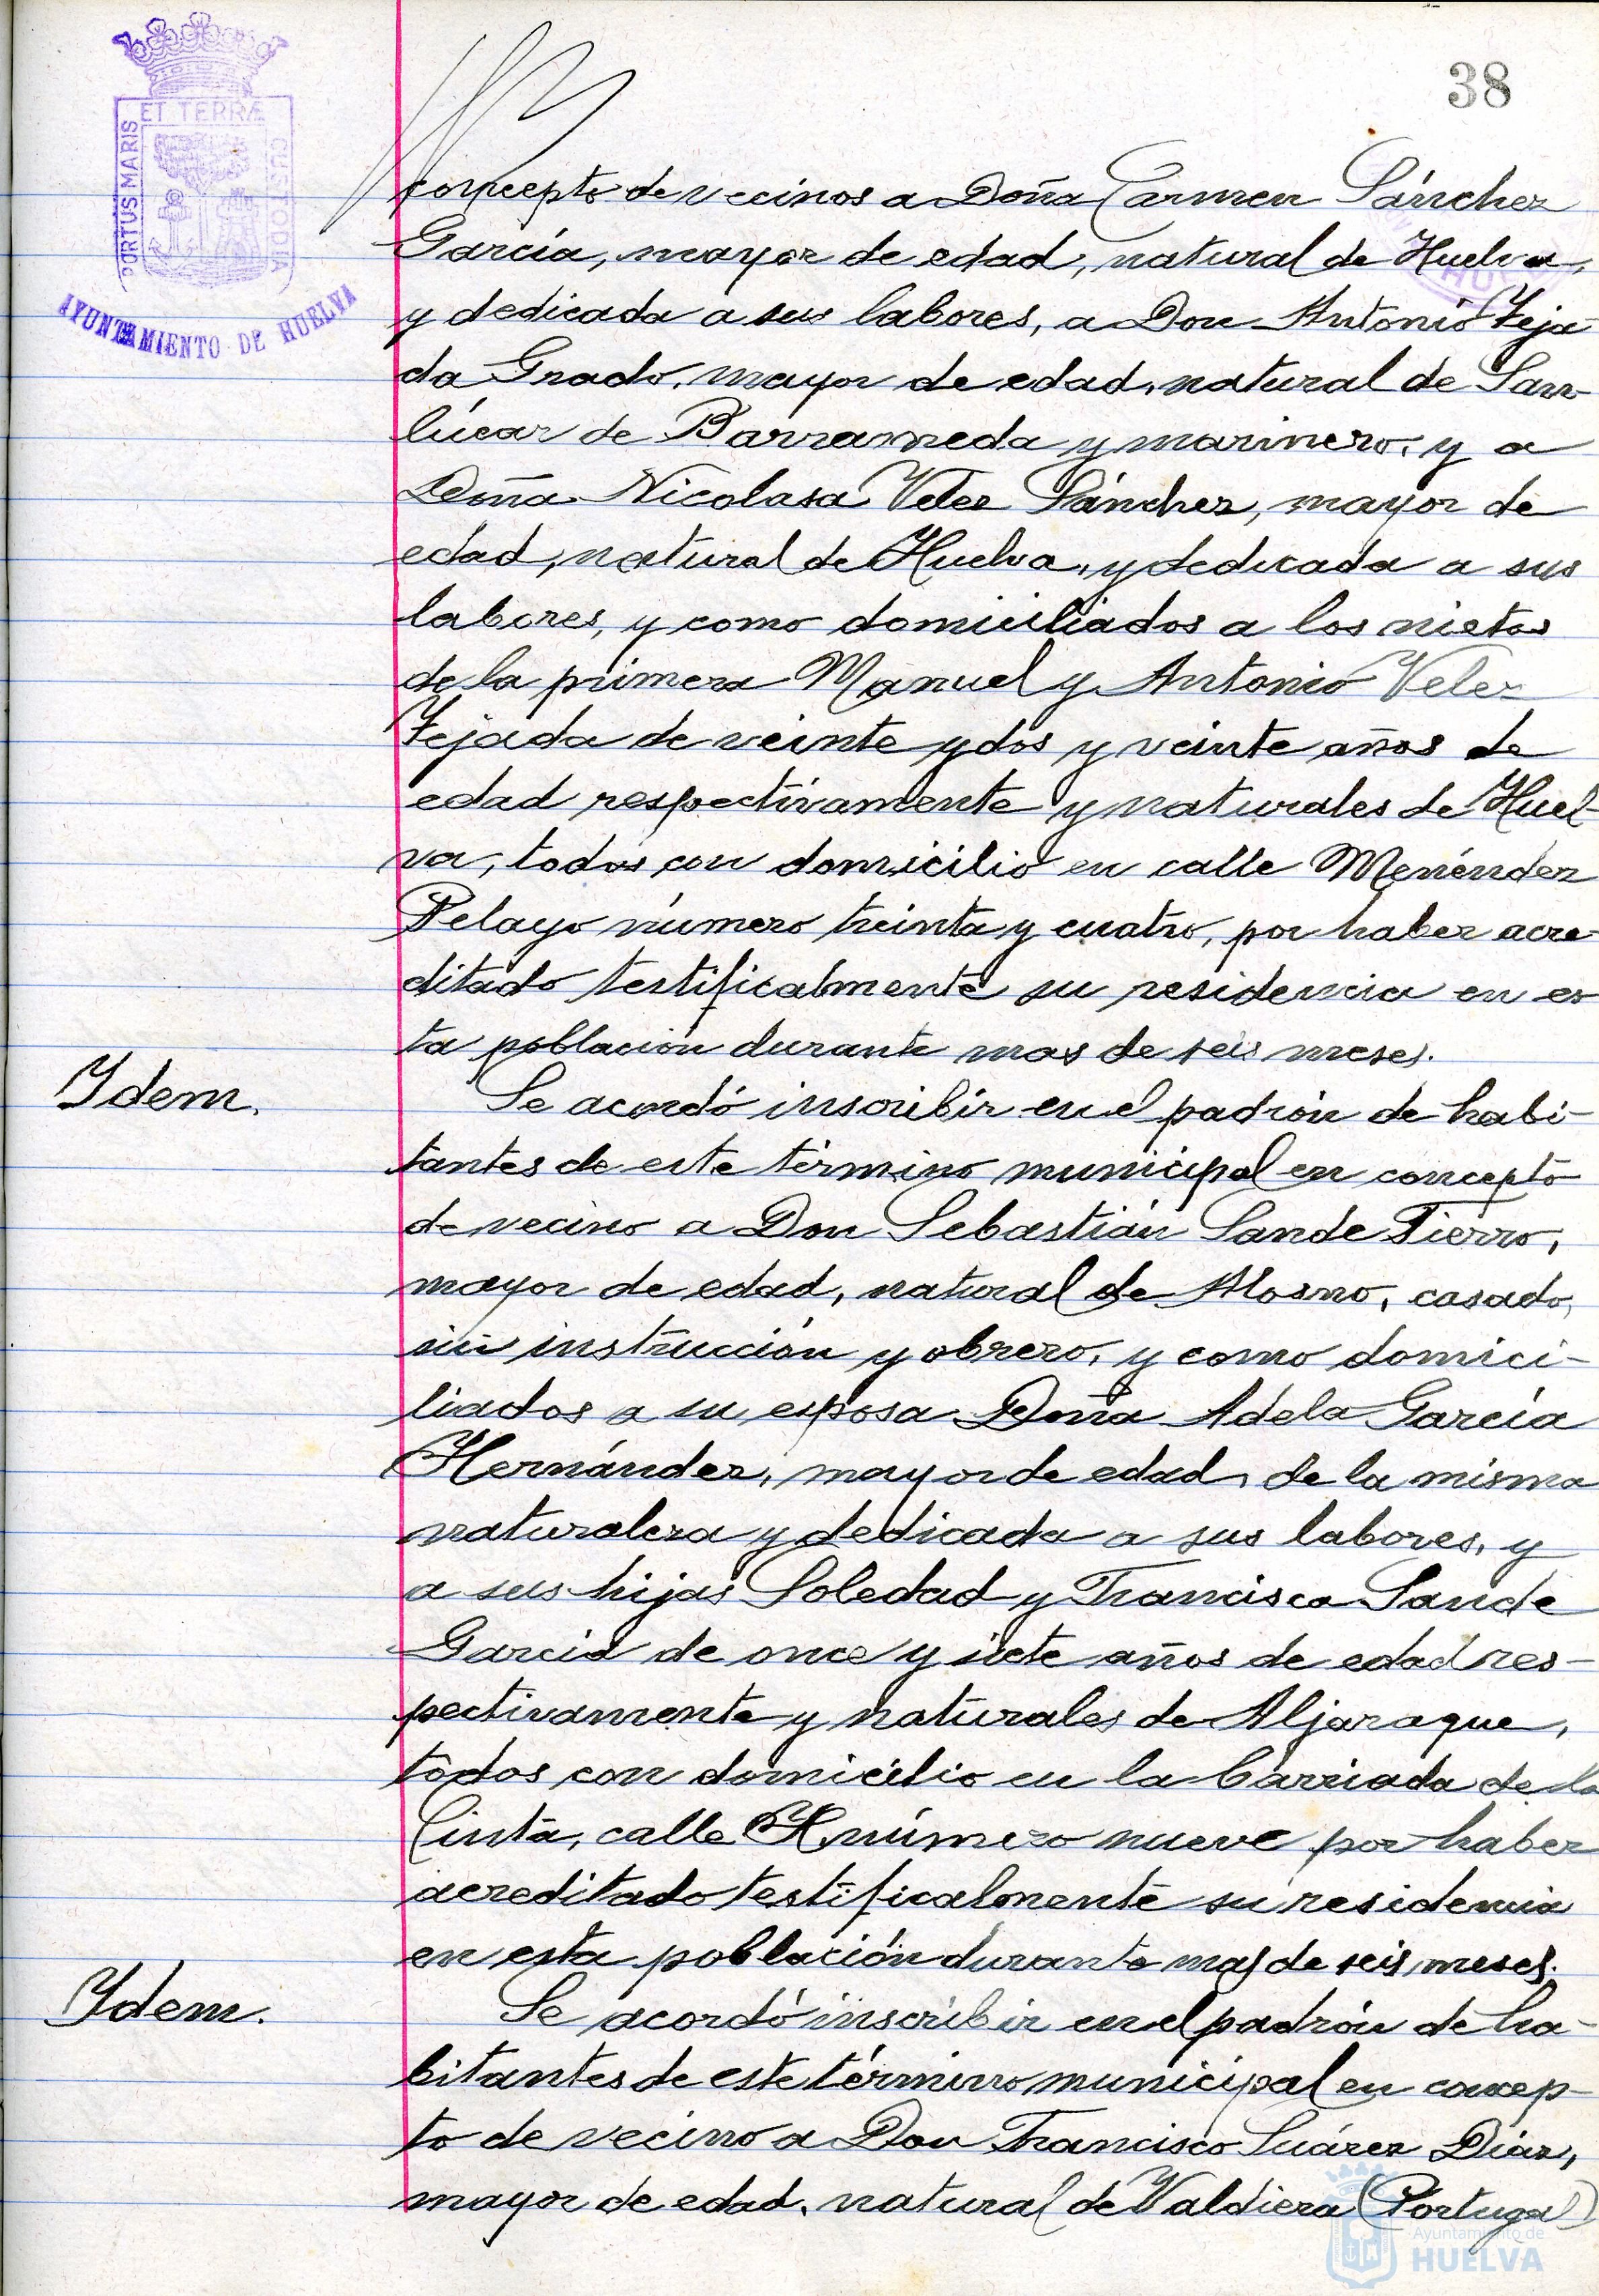 38
ET TERRÆ
PORTUS MARIS
CUSTODIA
AYUNTAMIENTO DE HUELVA
concepto de vecinos a Doña Carmen Sánchez
García, mayor de edad, natural de Huelva,
y dedicada a sus labores, a Don Antonio Teja-
da Grado, mayor de edad, natural de San-
lúcar de Barrameda y marinero, y a
Doña Nicolasa Velez Sánchez, mayor de
edad, natural de Huelva, y dedicada a sus
labores, y como domiciliados a los nietos
de la primera Manuel y Antonio Velez
Tejada de veinte y dos y veinte años de
edad respectivamente y naturales de Huel-
va, todos con domicilio en calle Menéndez
Pelayo número treinta y cuatro, por haber acre-
ditado testificalmente su residencia en es-
ta población durante mas de seis meses.
Ydem.
Se acordó inscribir en el padrón de habi-
tantes de este término municipal en concepto
de vecino a Don Sebastián Sande Fierro,
mayor de edad, natural de Alosno, casado,
sin instrucción y obrero, y como domici-
liados a su esposa Doña Adela García
Hernández, mayor de edad, de la misma
naturaleza y dedicada a sus labores, y
a sus hijas Soledad y Francisca Sande
García de once y siete años de edad res-
pectivamente y naturales de Aljaraque,
todos con domicilio en la barriada de la
Cinta, calle H número nueve por haber
acreditado testificalmente su residencia
en esta población durante mas de seis meses.
Ydem.
Se acordó inscribir en el padrón de ha-
bitantes de este término municipal en concep-
to de vecino a Don Francisco Suárez Díaz,
mayor de edad, natural de Valdiera (Portugal)
Ayuntamiento de
HUELVA